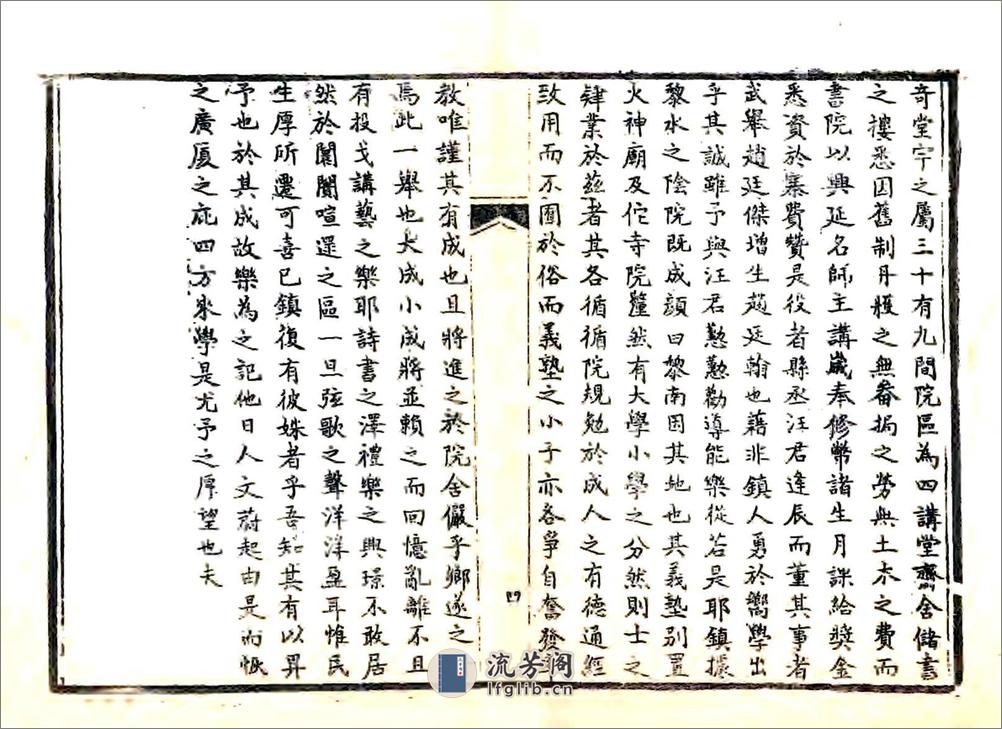 奇堂宇之屬三十有九間院區為四講堂齋舍儲書
之樓悉因舊制丹雘之無畚挶之勞與土木之費而
書院以興延名師主講歲奉修幣諸生月課給獎金
悉資於寨費贊是役者縣丞汪君逢辰而董其事者
武舉趙廷傑增生趙廷翰也藉非鎮人勇於嚮學出
乎其誠雖予與汪君懃懃勸導能樂從若是耶鎮據
黎水之陰院既成顏曰黎南因其地也其義塾別置
火神廟及佗寺院釐然有大學小學之分然則士之
肄業於茲者其各循循院規勉於成人之有德通經
致用而不囿於俗而義塾之小子亦各爭自奮發
四
教唯謹其有成也且將進之於院舍儼乎鄉遂之
焉此一舉也大成小成將並賴之而回憶亂離不且
有投戈講藝之樂耶詩書之澤禮樂之興璟不敢居
然於闤闠喧遝之區一旦弦歌之聲洋洋盈耳惟民
生厚所遷可喜已鎮復有彼姝者乎吾知其有以昇
予也於其成故樂為之記他日人文蔚起由是而恢
之廣廈之庇四方來學是尤予之厚望也夫
流芳閣
lfglib.cn